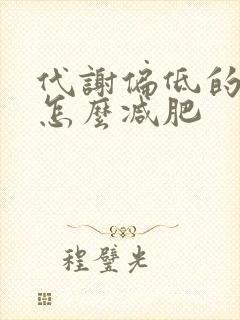 代謝偏低的
怎麼減肥
程璧光